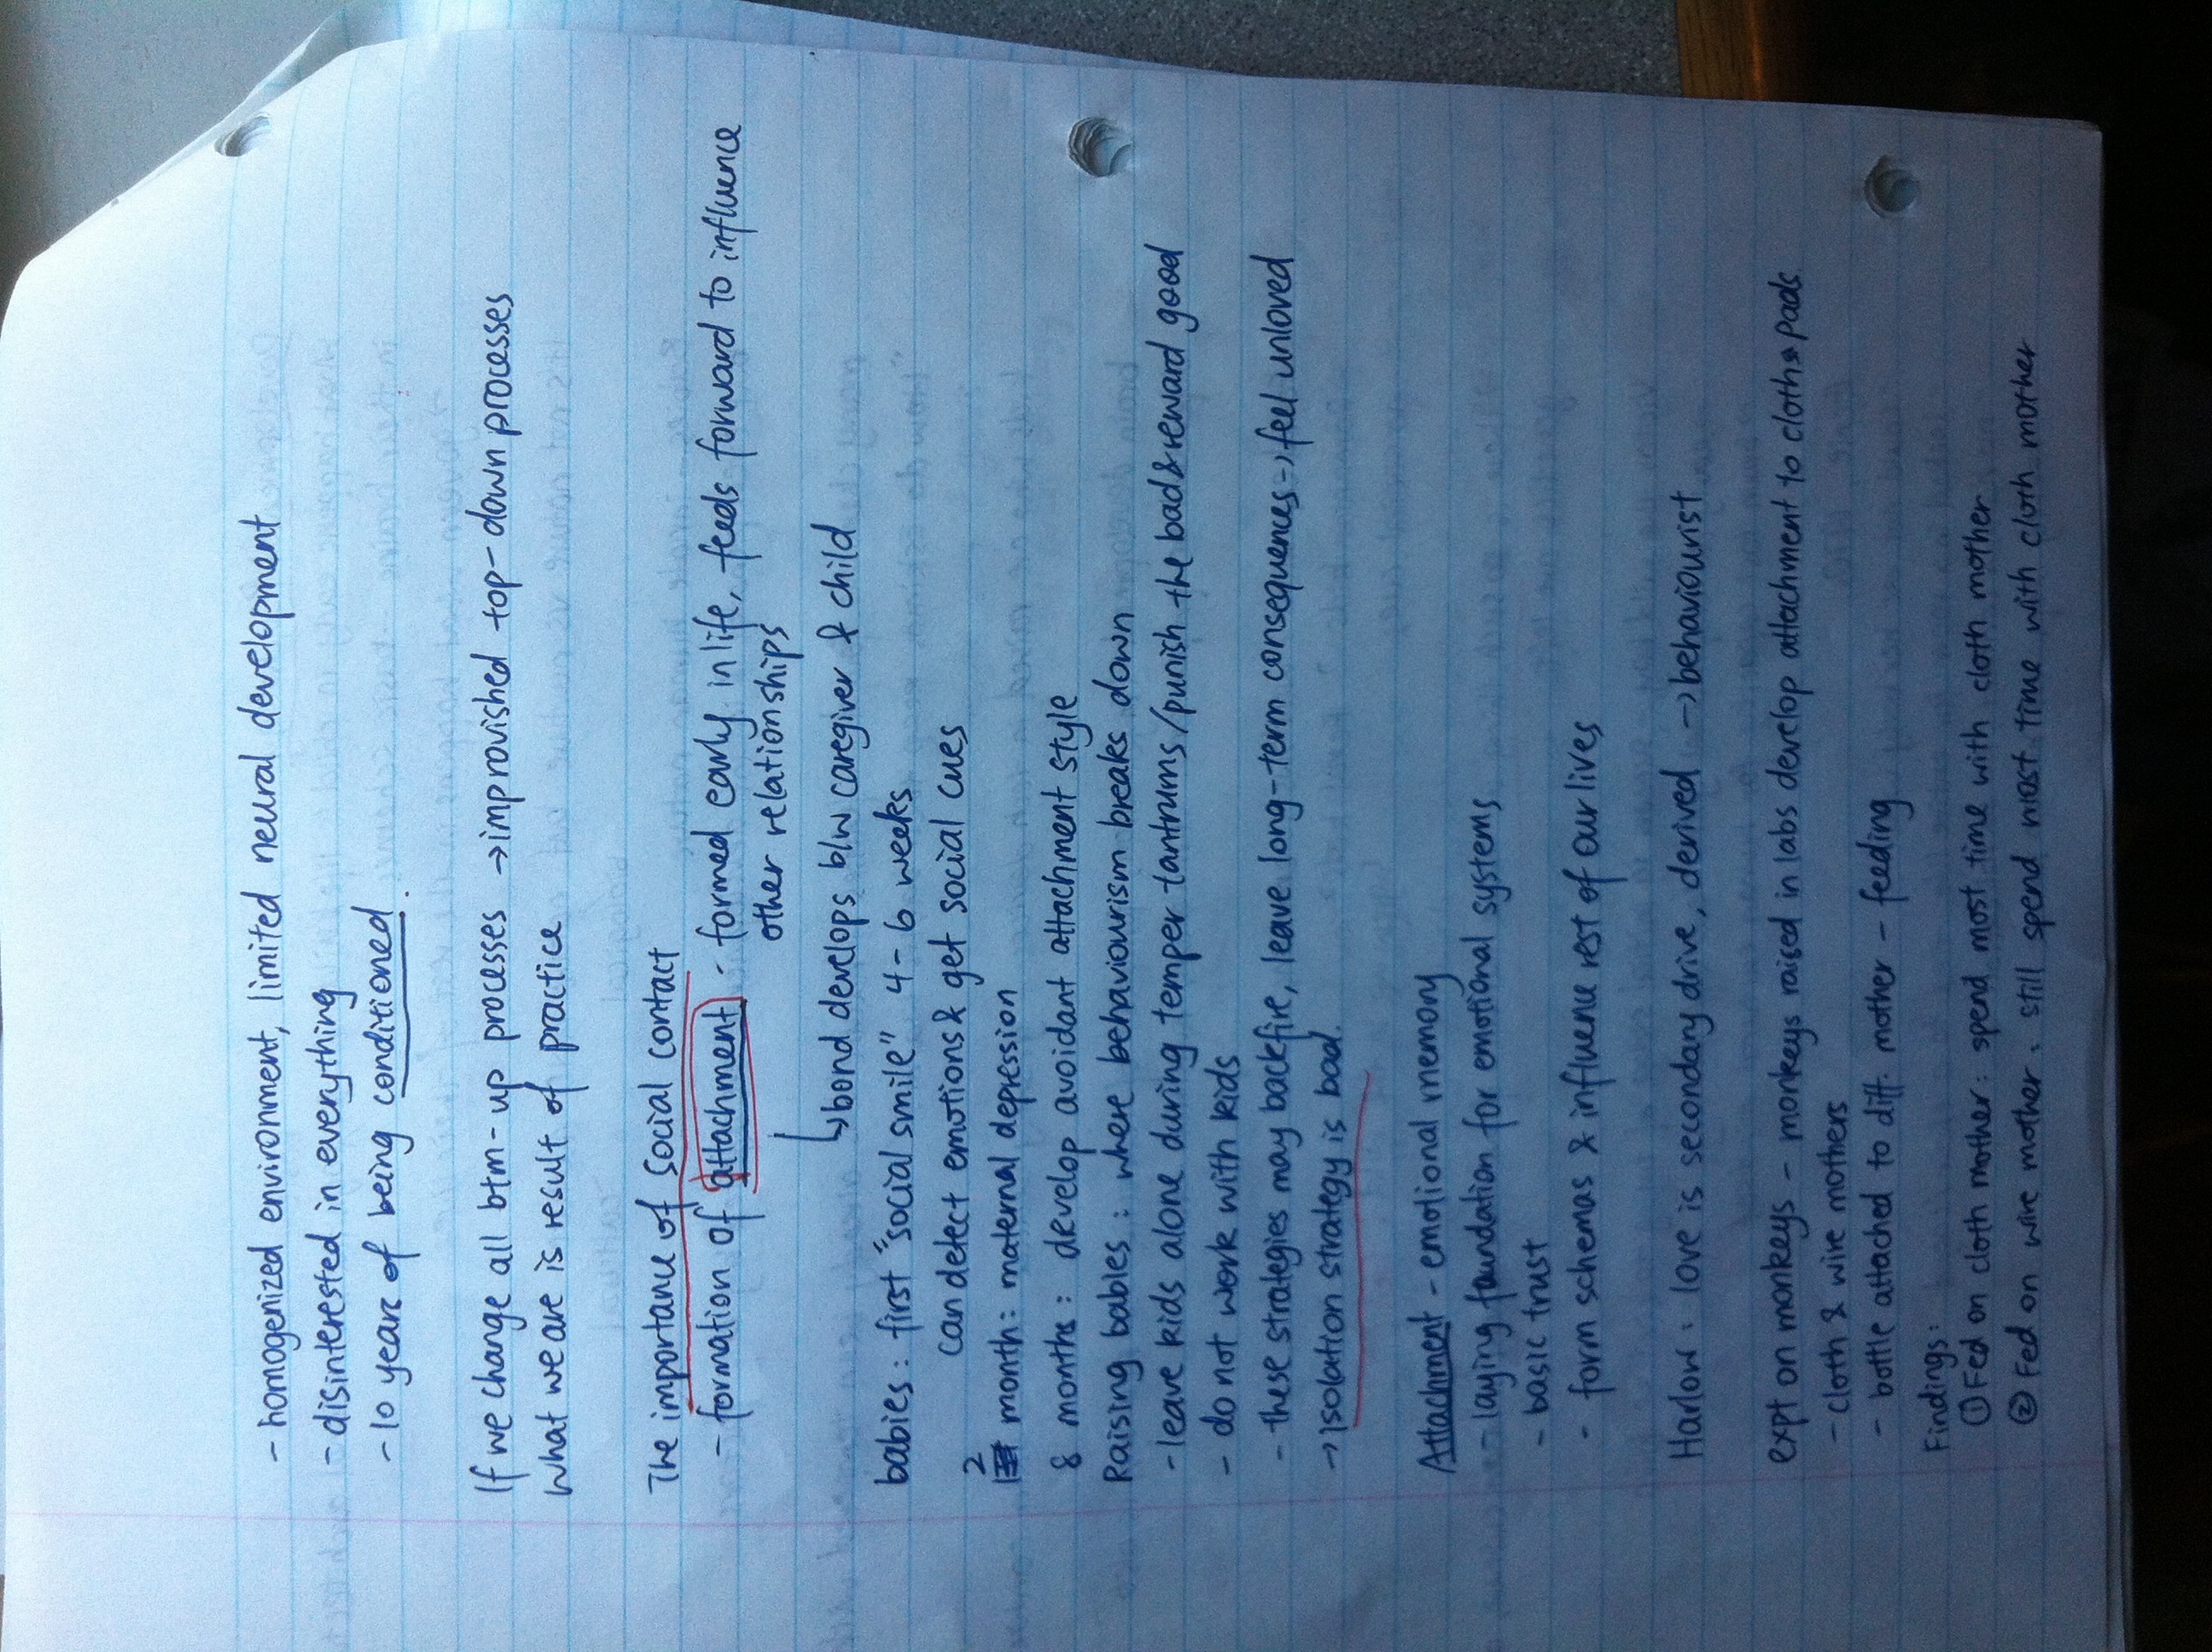 - homogenized environment, limited neural development
- disinterested in everything
- 10 years of being conditioned.
If we change all btm-up processes → improvished top-down processes
what we are is result of practice
The importance of social contact
- formation of attachment - formed early in life, feeds forward to influence
other relationships
↳ bond develops b/w caregiver & child
babies: first "social smile" 4-6 weeks
can detect emotions & get social cues
2 month: maternal depression
8 months: develop avoidant attachment style
Raising babies: where behaviourism breaks down
- leave kids alone during temper tantrums/punish the bad & reward good
- do not work with kids
- these strategies may backfire, leave long-term consequences → feel unloved
→ isolation strategy is bad.
Attachment - emotional memory
- laying foundation for emotional systems
- basic trust
- form schemas & influence rest of our lives
Harlow: love is secondary drive, derived → behaviourist
expt on monkeys - monkeys raised in labs develop attachment to cloth pads
- cloth & wire mothers
- bottle attached to diff. mother - feeding
Findings:
① Fed on cloth mother: spend most time with cloth mother
② Fed on wire mother: still spend most time with cloth mother